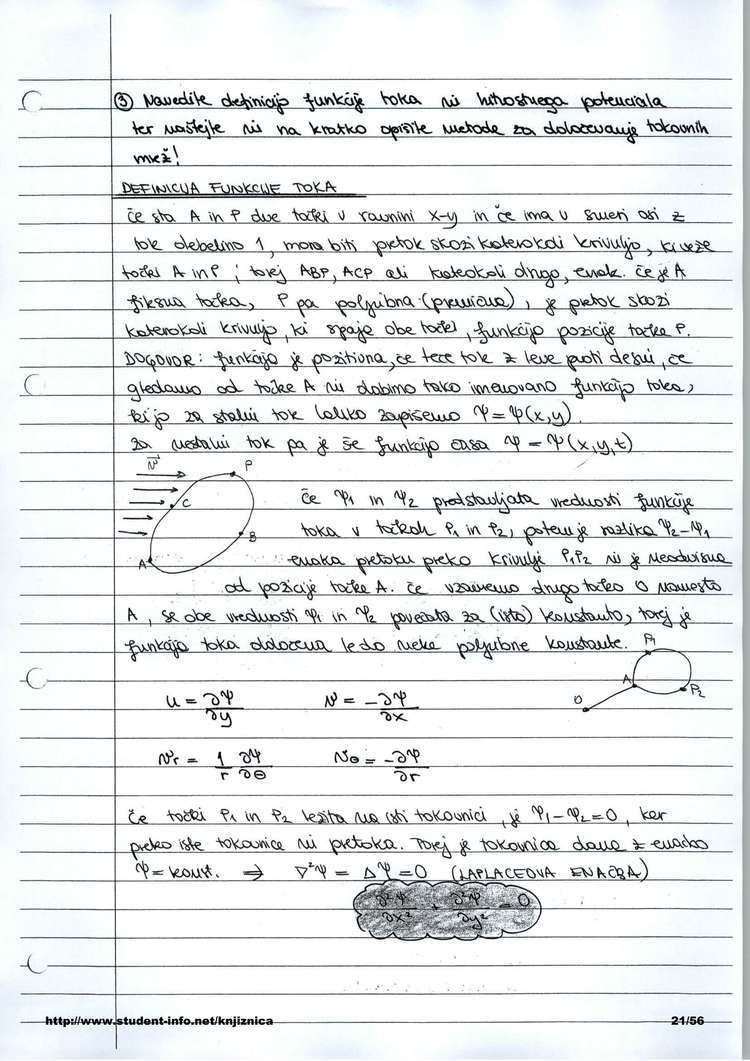 ③ Navedite definicijo funkcije toka in hitrostnega potenciala
ter naštejte in na kratko opišite metode za določevanje tokovnih
mrež!
DEFINICIJA FUNKCIJE TOKA
Če sta A in P dve točki v ravnini x-y in če ima v smeri osi z
tok debelino 1, mora biti pretok skozi katerokoli krivuljo, ki veže
točki A in P ; torej ABP, ACP ali katerokoli drugo, enak. Če je A
fiksna točka, P pa poljubna (premična), je pretok skozi
katerokoli krivuljo, ki spaja obe točki, funkcija pozicije točke P.
DOGOVOR: funkcija je pozitivna, če teče tok z leve proti desni, če
gledamo od točke A in dobimo tako imenovano funkcijo toka,
ki jo za stalni tok lahko zapišemo Ψ = Ψ(x,y).
Za nestalni tok pa je še funkcija časa Ψ = Ψ(x,y,t)
v P
C
B
A
Če Ψ1 in Ψ2 predstavljata vrednosti funkcije
toka v točkah P1 in P2, potem je razlika Ψ2-Ψ1
enaka pretoku preko krivulje P1P2 in je neodvisna
od pozicije točke A. Če vzamemo drugo točko O namesto
A, se obe vrednosti Ψ1 in Ψ2 povečata za (isto) konstanto, torej je
funkcija toka določena le do neke poljubne konstante.
P1
A
O
P2
u = ∂Ψ/∂y v = -∂Ψ/∂x
vr = 1/r ∂Ψ/∂θ vθ = -∂Ψ/∂r
Če točki P1 in P2 ležita na isti tokovnici, je Ψ1-Ψ2=0, ker
preko iste tokovnice ni pretoka. Torej je tokovnica dana z enačbo
Ψ = konst. ⇒ ∇²Ψ = ΔΨ = 0 (LAPLACEOVA ENAČBA)
∂²Ψ/∂x² + ∂²Ψ/∂y² = 0
http://www.student-info.net/knjiznica 21/56